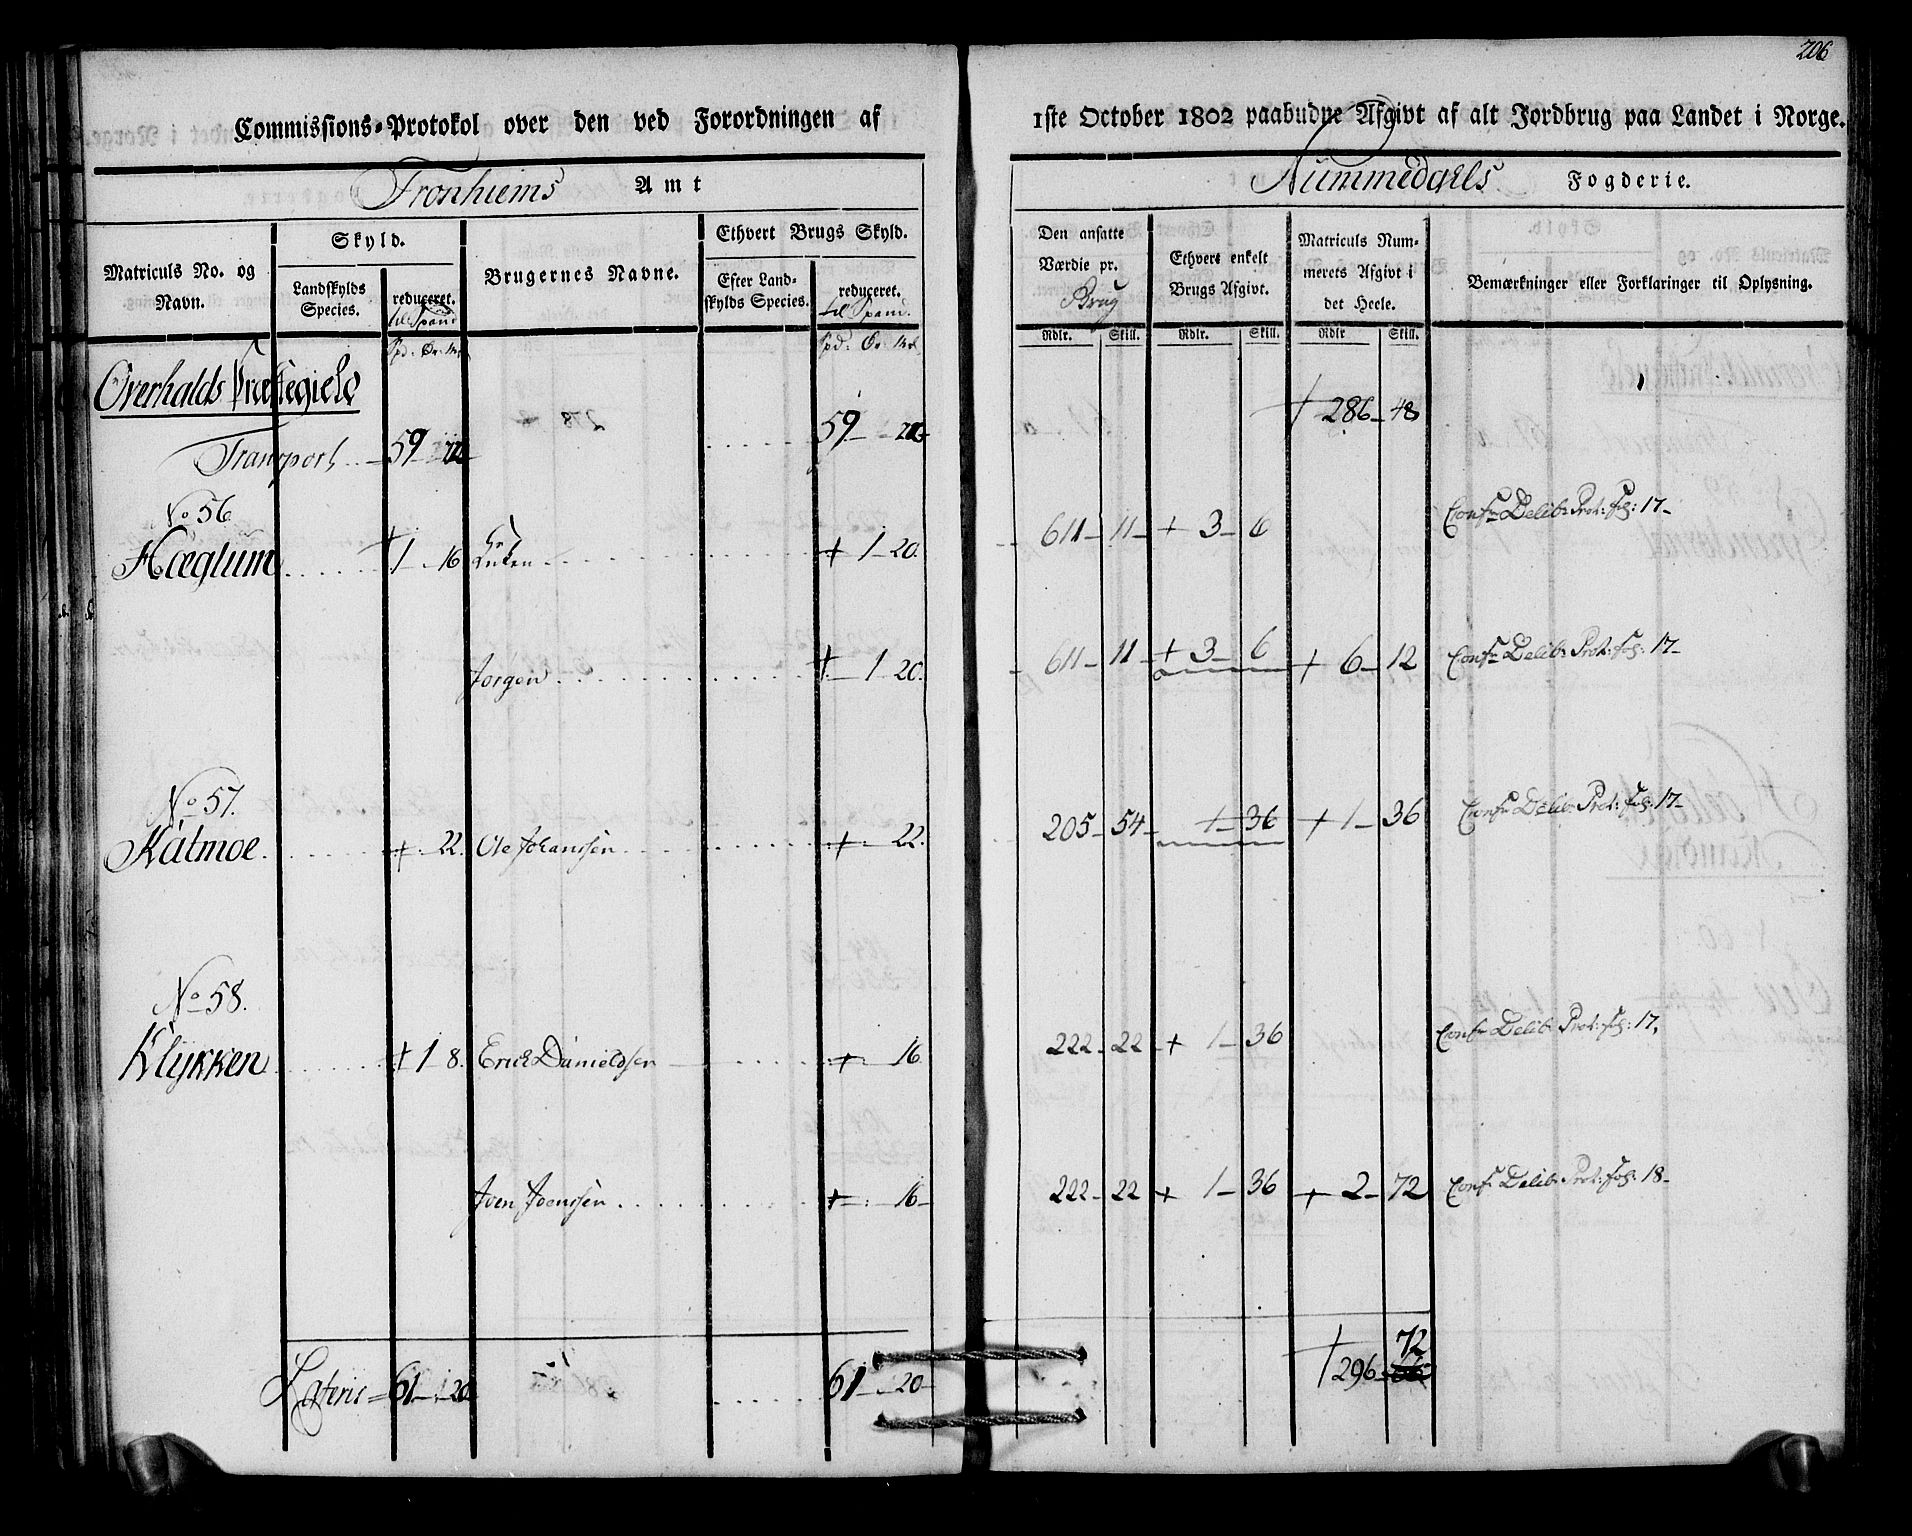 206
Commissions-Protokol over den ved Forordningen af 1ste October 1802 paabudne Afgivt af alt Jordbrug paa Landet i Norge.
Tronhiems Amt Nummedahls Fogderie.
Matriculs No. og Navn.
Skyld.
Landskylds Species.
reduceret. til Spand
Brugernes Navne.
Ethvert Brugs Skyld.
Efter Landskylds Species.
reduceret. til Spand.
Den ansatte Værdie pr. Brug
Ethvert enkelt Brugs Afgivt.
Matriculs Nummerets Afgivt i det Heele.
Bemærkninger eller Forklaringer til Oplysning.
Spd: Ör: Mk Spd: Ör: Mk Rdlr. Skill. Rdlr. Skill. Rdlr Skill.
Overhalds Præstegield
Transport 59 59 + 286 48
No 56
Hæglum + 1 16 + 1 20 611 11 + 3 6 Confr Delib: Prot: fol: 17
Jorgen + 1 20 611 11 + 3 6 + 6 12 Confr Delib: Prot: fol: 17
No 57.
Katmoe + 22 Ole Johanssen + 22 205 54 1 36 + 1 36 Confr Delib: Prot: fol: 17
No 58.
Klykken + 1 8 Erich Danieldsen + 16 222 22 + 1 36 Confr Delib: Prot: fol: 17
Joen Joenssen + 16 222 22 + 1 36 + 2 72 Confr Delib: Prot: fol: 18
Lateris 61 20 61 20 + 296 72